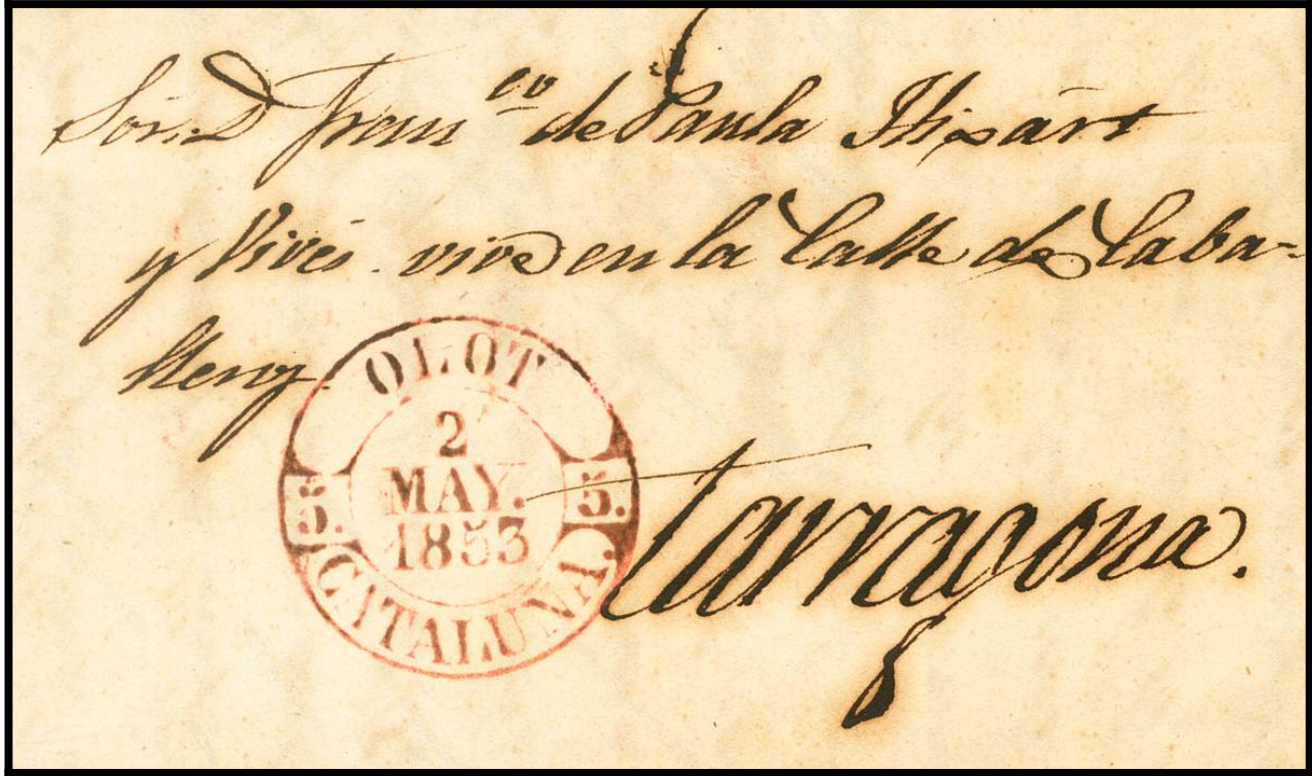 Sör. D Fran.co de Paula Ihixart
y Vives. vive en la Calle de Caba-
llery.
OLOT
2
MAY.
1853
5. 5.
CATALUÑA.
Tarragona.